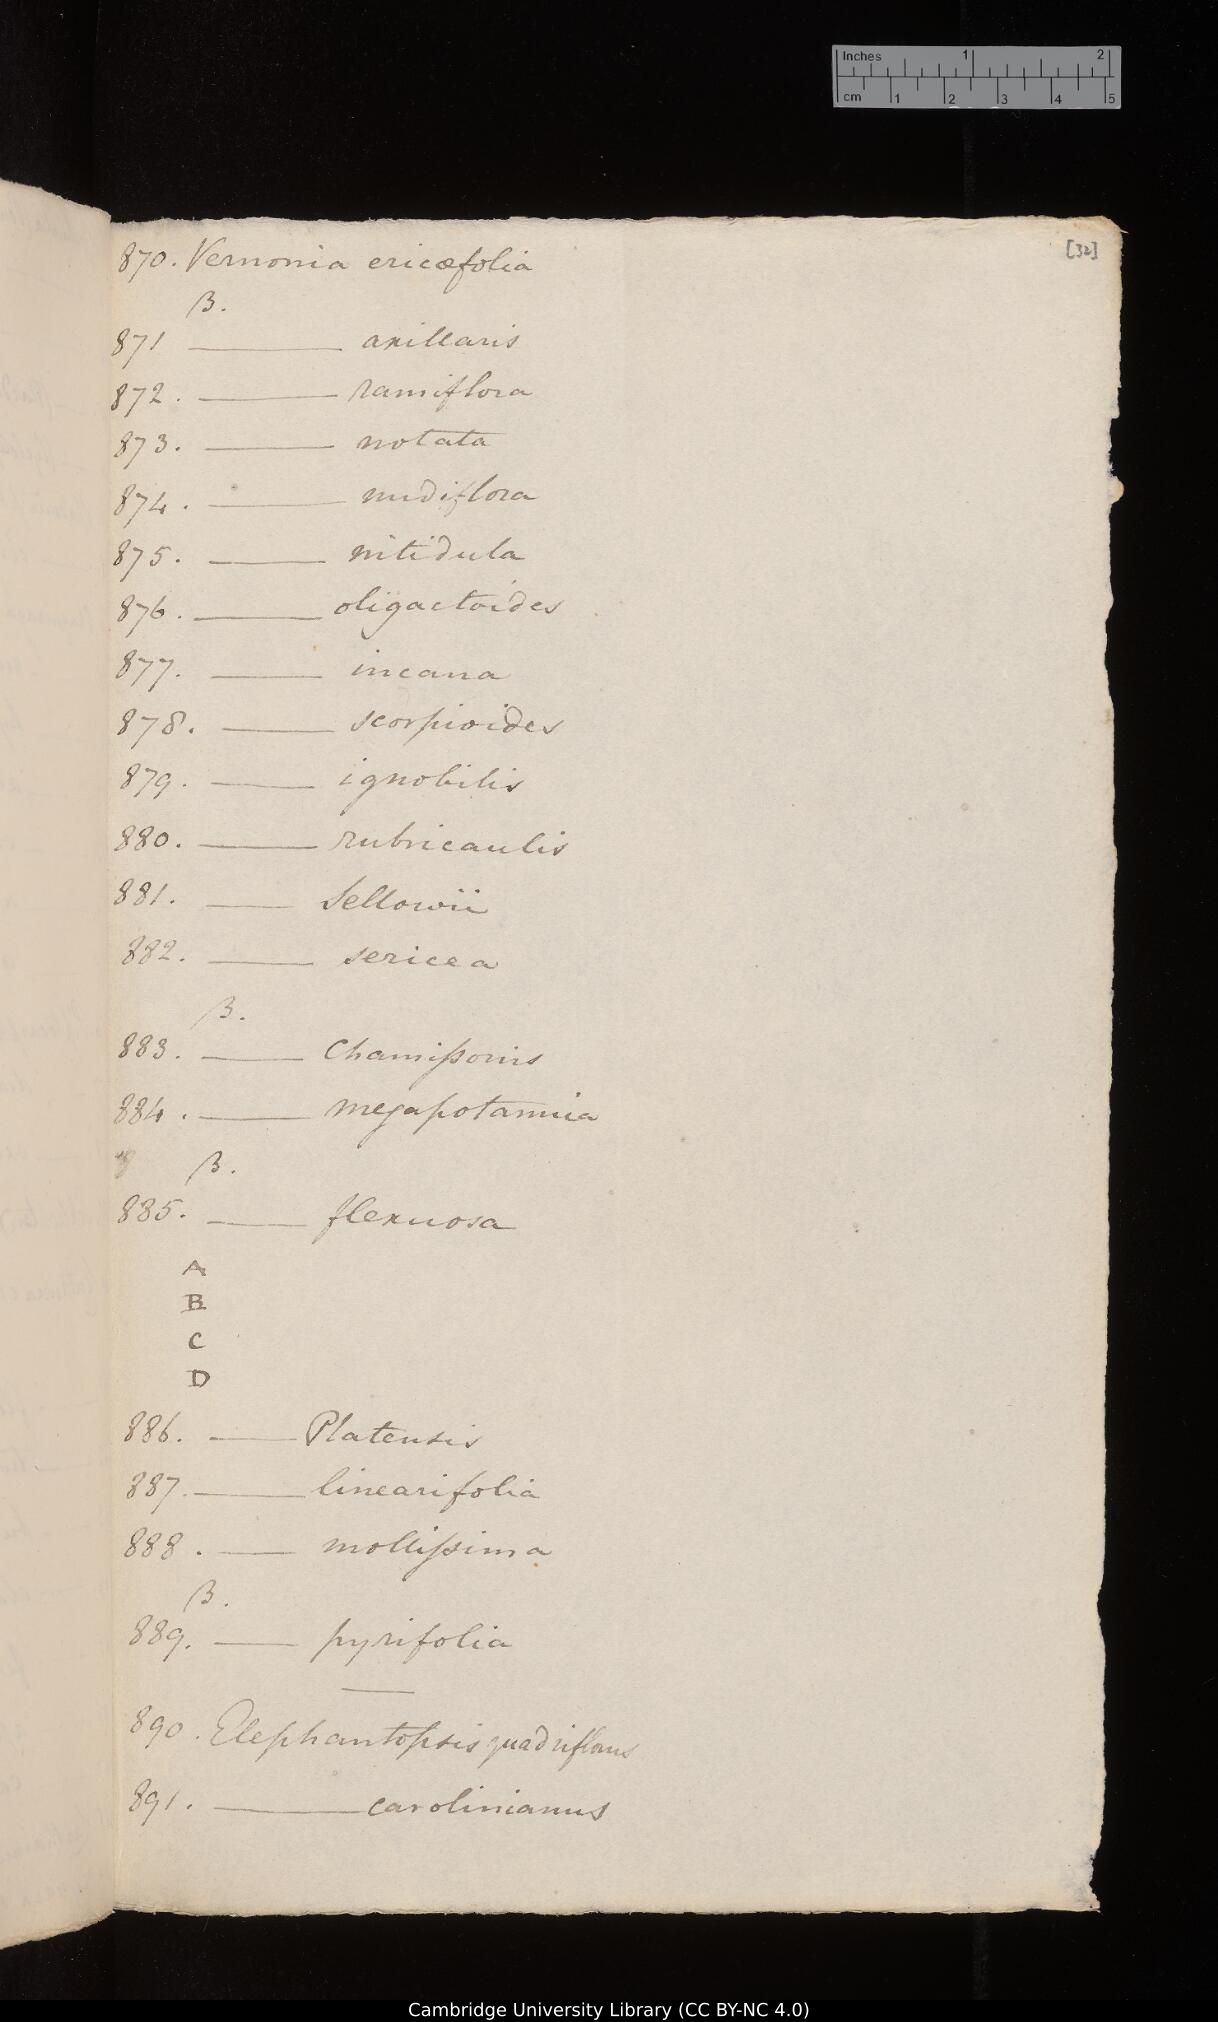 Inches 1 2
cm 1 2 3 4 5
[32]
870. Vernonia ericæfolia
β.
871 ——— axillaris
872. ——— ramiflora
873. ——— notata
874. ——— nudiflora
875. ——— nitidula
876. ——— oligactoides
877. ——— incana
878. ——— scorpioides
879. ——— ignobilis
880. ——— rubricaulis
881. ——— Sellowii
882. ——— sericea
β.
883. ——— Chamißonis
884. ——— megapotamica
β.
885. ——— flexuosa
A
B
C
D
886. ——— Platensis
887. ——— linearifolia
888. ——— mollißima
β.
889. ——— pyrifolia
890. Elephantopsis quadriflorus
891. ——— carolinianus
Cambridge University Library (CC BY-NC 4.0)